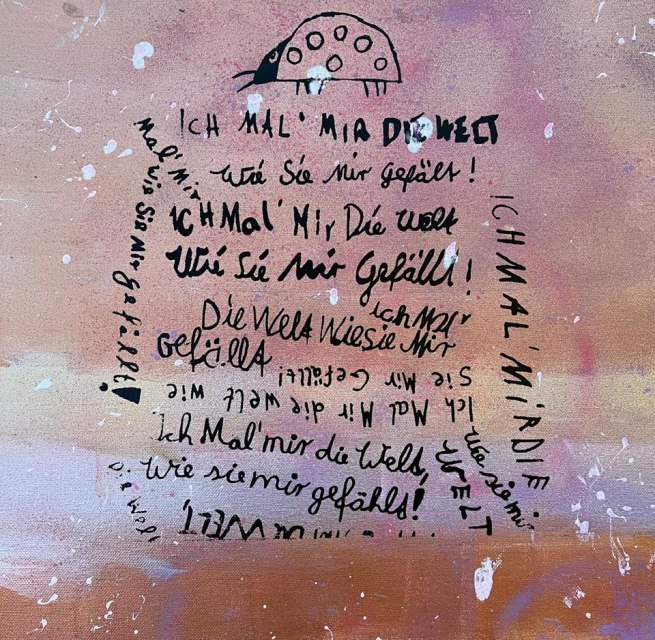 ICH MAL' MIR DIE WELT
wie Sie Mir gefält!
ICH Mal' Mir Die Welt
Wie Sie Mir Gefällt!
ich Mal'
Die Welt Wie sie Mir
Gefällt
Ich Mal Mir die Welt wie
Sie Mir Gefällt!
Ich Mal' mir die Welt,
wie sie mir gefählt!
Mal' Mir
wie Sie Mir gefällt!
Die Welt
ICH MAL' MIR DIE
WELT
wie sie mir